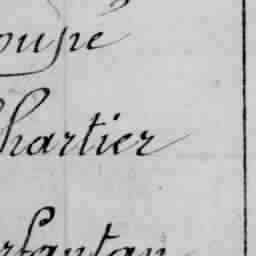 oupé
Chartier
rfantan